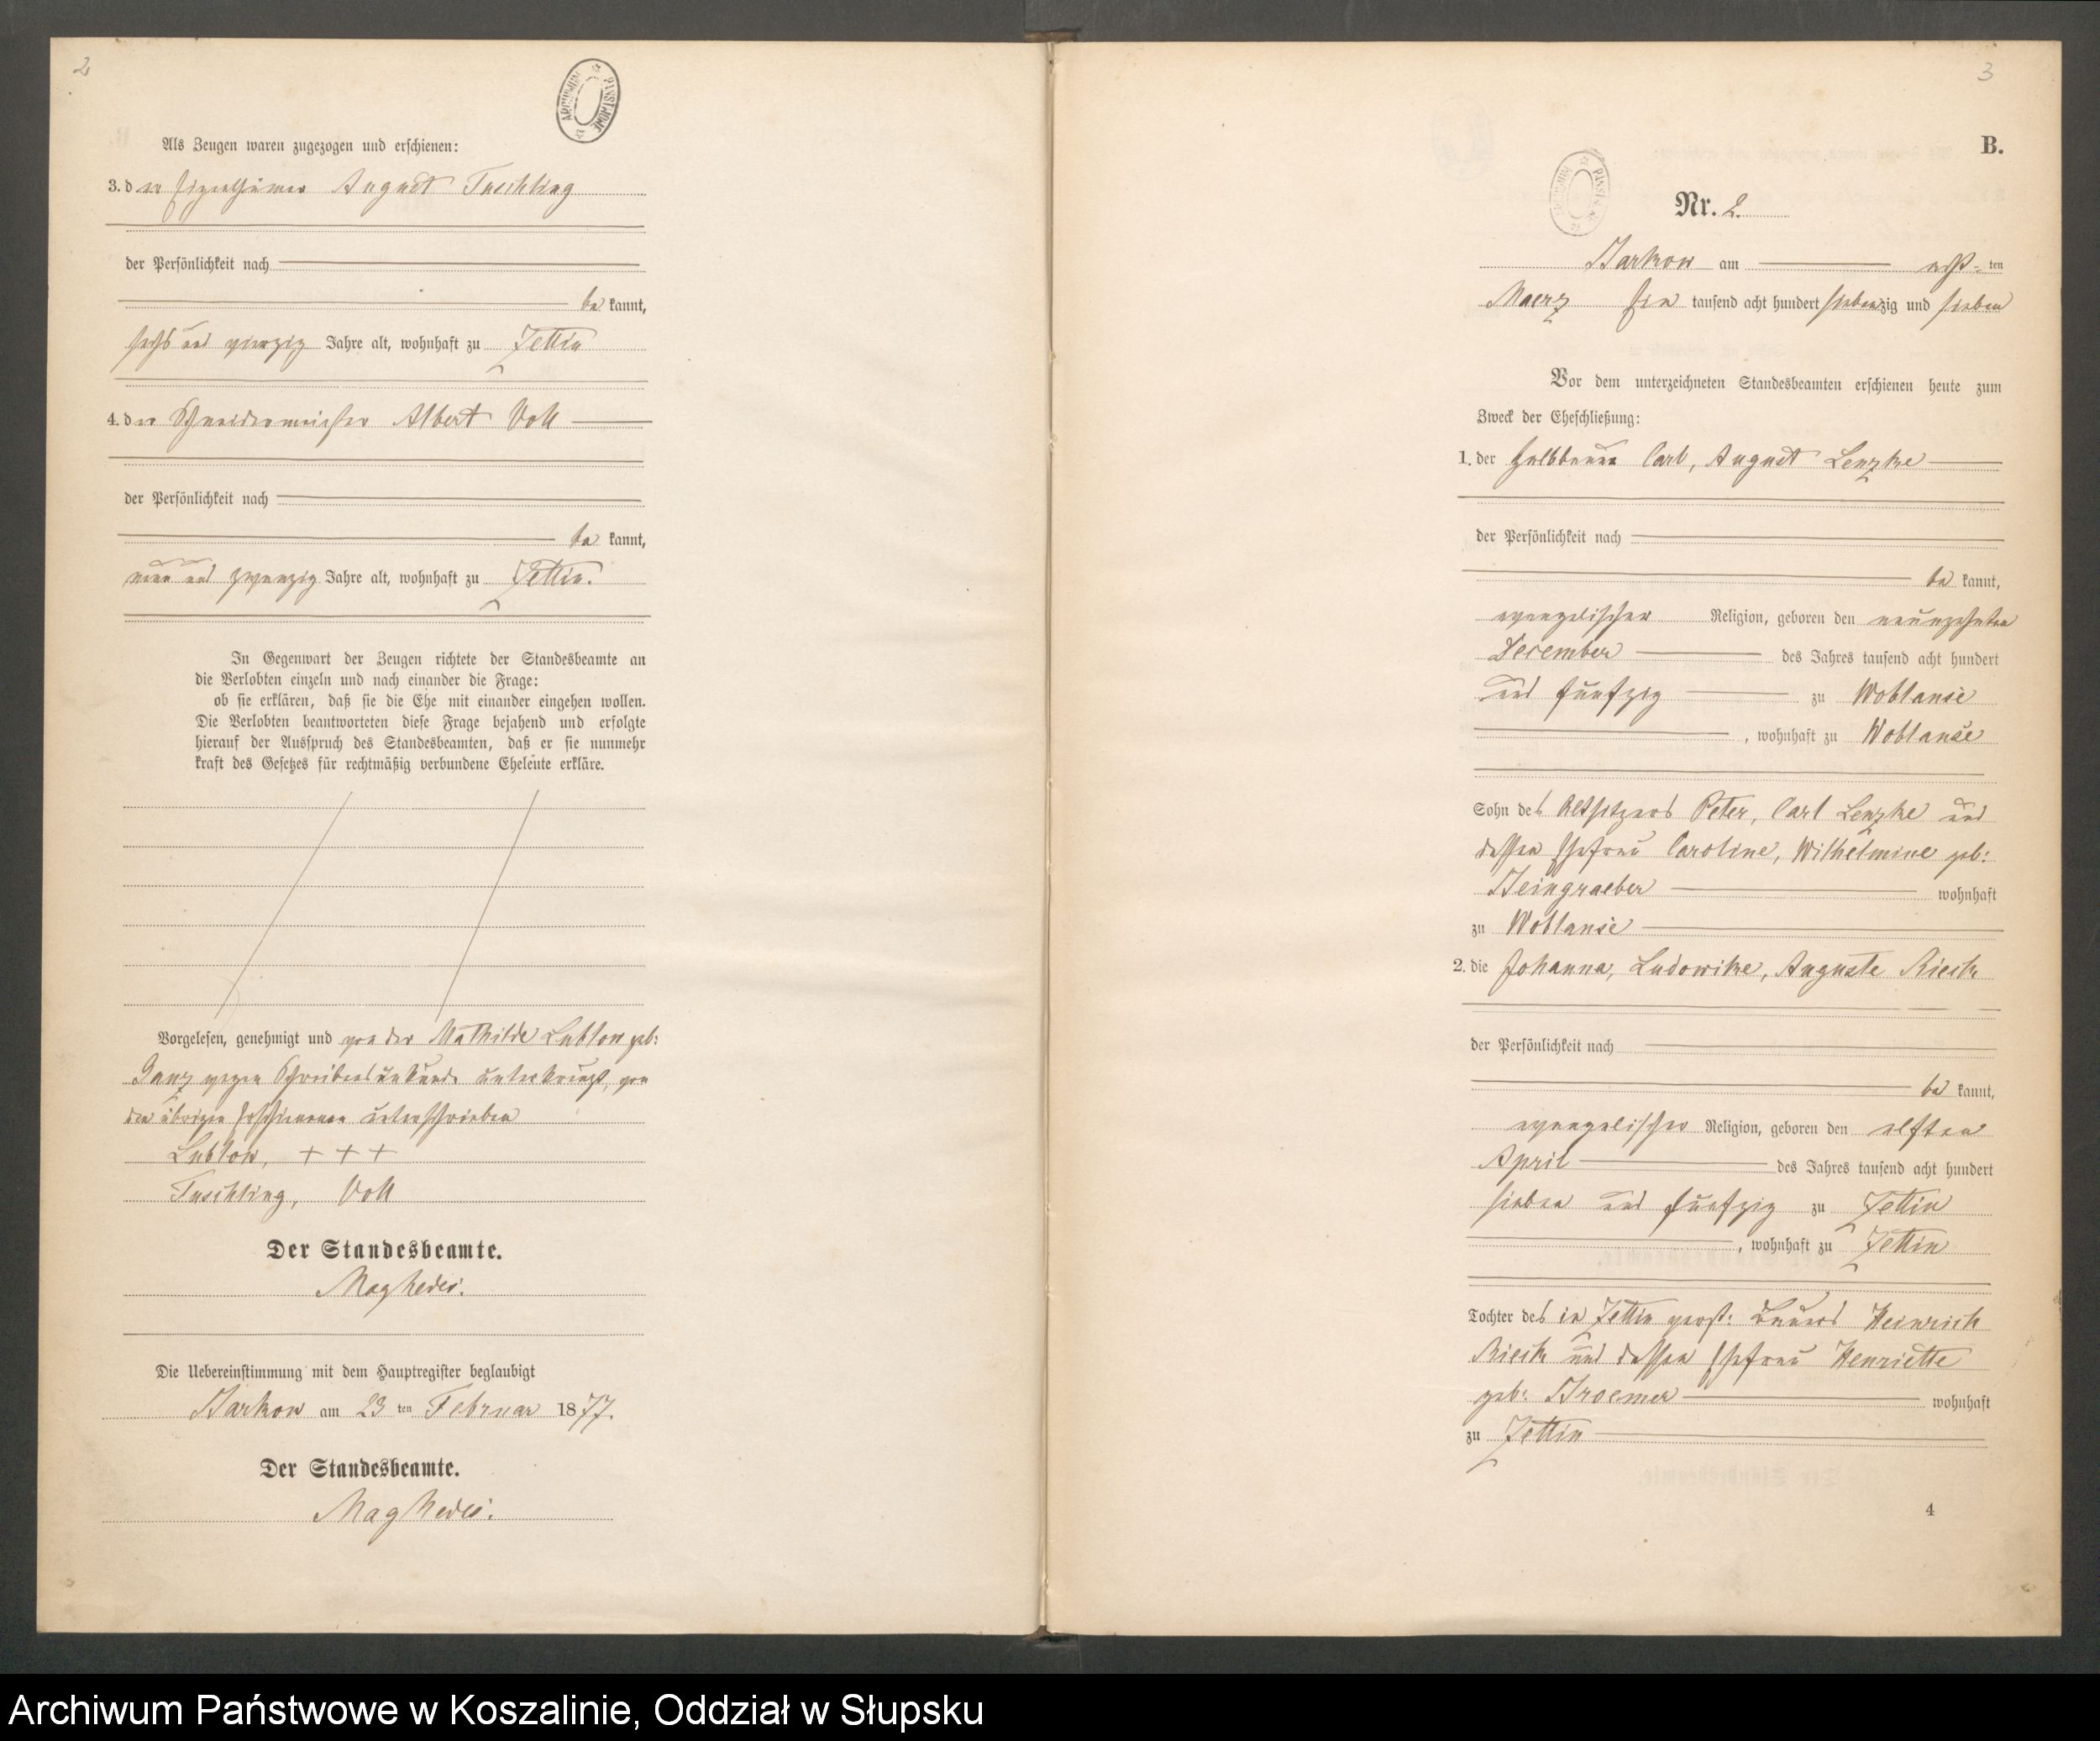 2
ARCHIWUM PAŃSTWOWE
Als Zeugen waren zugezogen und erschienen:
3. der Eigenthümer August Tuschling
der Persönlichkeit nach
bekannt,
sechs und vierzig Jahre alt, wohnhaft zu Zettin
4. der Schneidermeister Albert Voll
der Persönlichkeit nach
bekannt,
neun und zwanzig Jahre alt, wohnhaft zu Zettin.
In Gegenwart der Zeugen richtete der Standesbeamte an
die Verlobten einzeln und nach einander die Frage:
ob sie erklären, daß sie die Ehe mit einander eingehen wollen.
Die Verlobten beantworteten diese Frage bejahend und erfolgte
hierauf der Ausspruch des Standesbeamten, daß er sie nunmehr
kraft des Gesetzes für rechtmäßig verbundene Eheleute erkläre.
Vorgelesen, genehmigt und von der Mathilde Lublow geb:
Ganz wegen Schreibensunkunde unterkreuzt, von
den übrigen Erschienenen unterschrieben
Lublow, + + +
Tuschling, Voll
Der Standesbeamte.
Die Uebereinstimmung mit dem Hauptregister beglaubigt
Barkow am 23 ten Februar 1877.
Der Standesbeamte.
3
B.
Nr. 2.
Barkow am ersten
Maerz Ein tausend acht hundert siebenzig und sieben
Vor dem unterzeichneten Standesbeamten erschienen heute zum
Zweck der Eheschließung:
1. der Halbbauer Carl, August Lenzke
der Persönlichkeit nach
bekannt,
evangelischer Religion, geboren den neunzehnten
December des Jahres tausend acht hundert
und fünfzig zu Woblanse
, wohnhaft zu Woblanse
Sohn des Altsitzers Peter, Carl Lenzke und
dessen Ehefrau Caroline, Wilhelmine geb:
Steingraeber wohnhaft
zu Woblanse
2. die Johanna, Ludowike, Auguste Rieck
der Persönlichkeit nach
bekannt,
evangelischer Religion, geboren den elften
April des Jahres tausend acht hundert
sieben und fünfzig zu Zettin
, wohnhaft zu Zettin
Tochter des in Zettin verst: Bauers Heinrich
Rieck und dessen Ehefrau Henriette
geb: Broemer wohnhaft
zu Zettin
4
Archiwum Państwowe w Koszalinie, Oddział w Słupsku